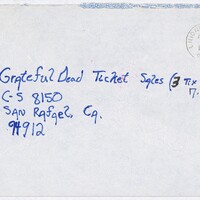 Grateful Dead Ticket Sales (3 Tix
7.
C-S 8150
San Rafael, Ca.
94912